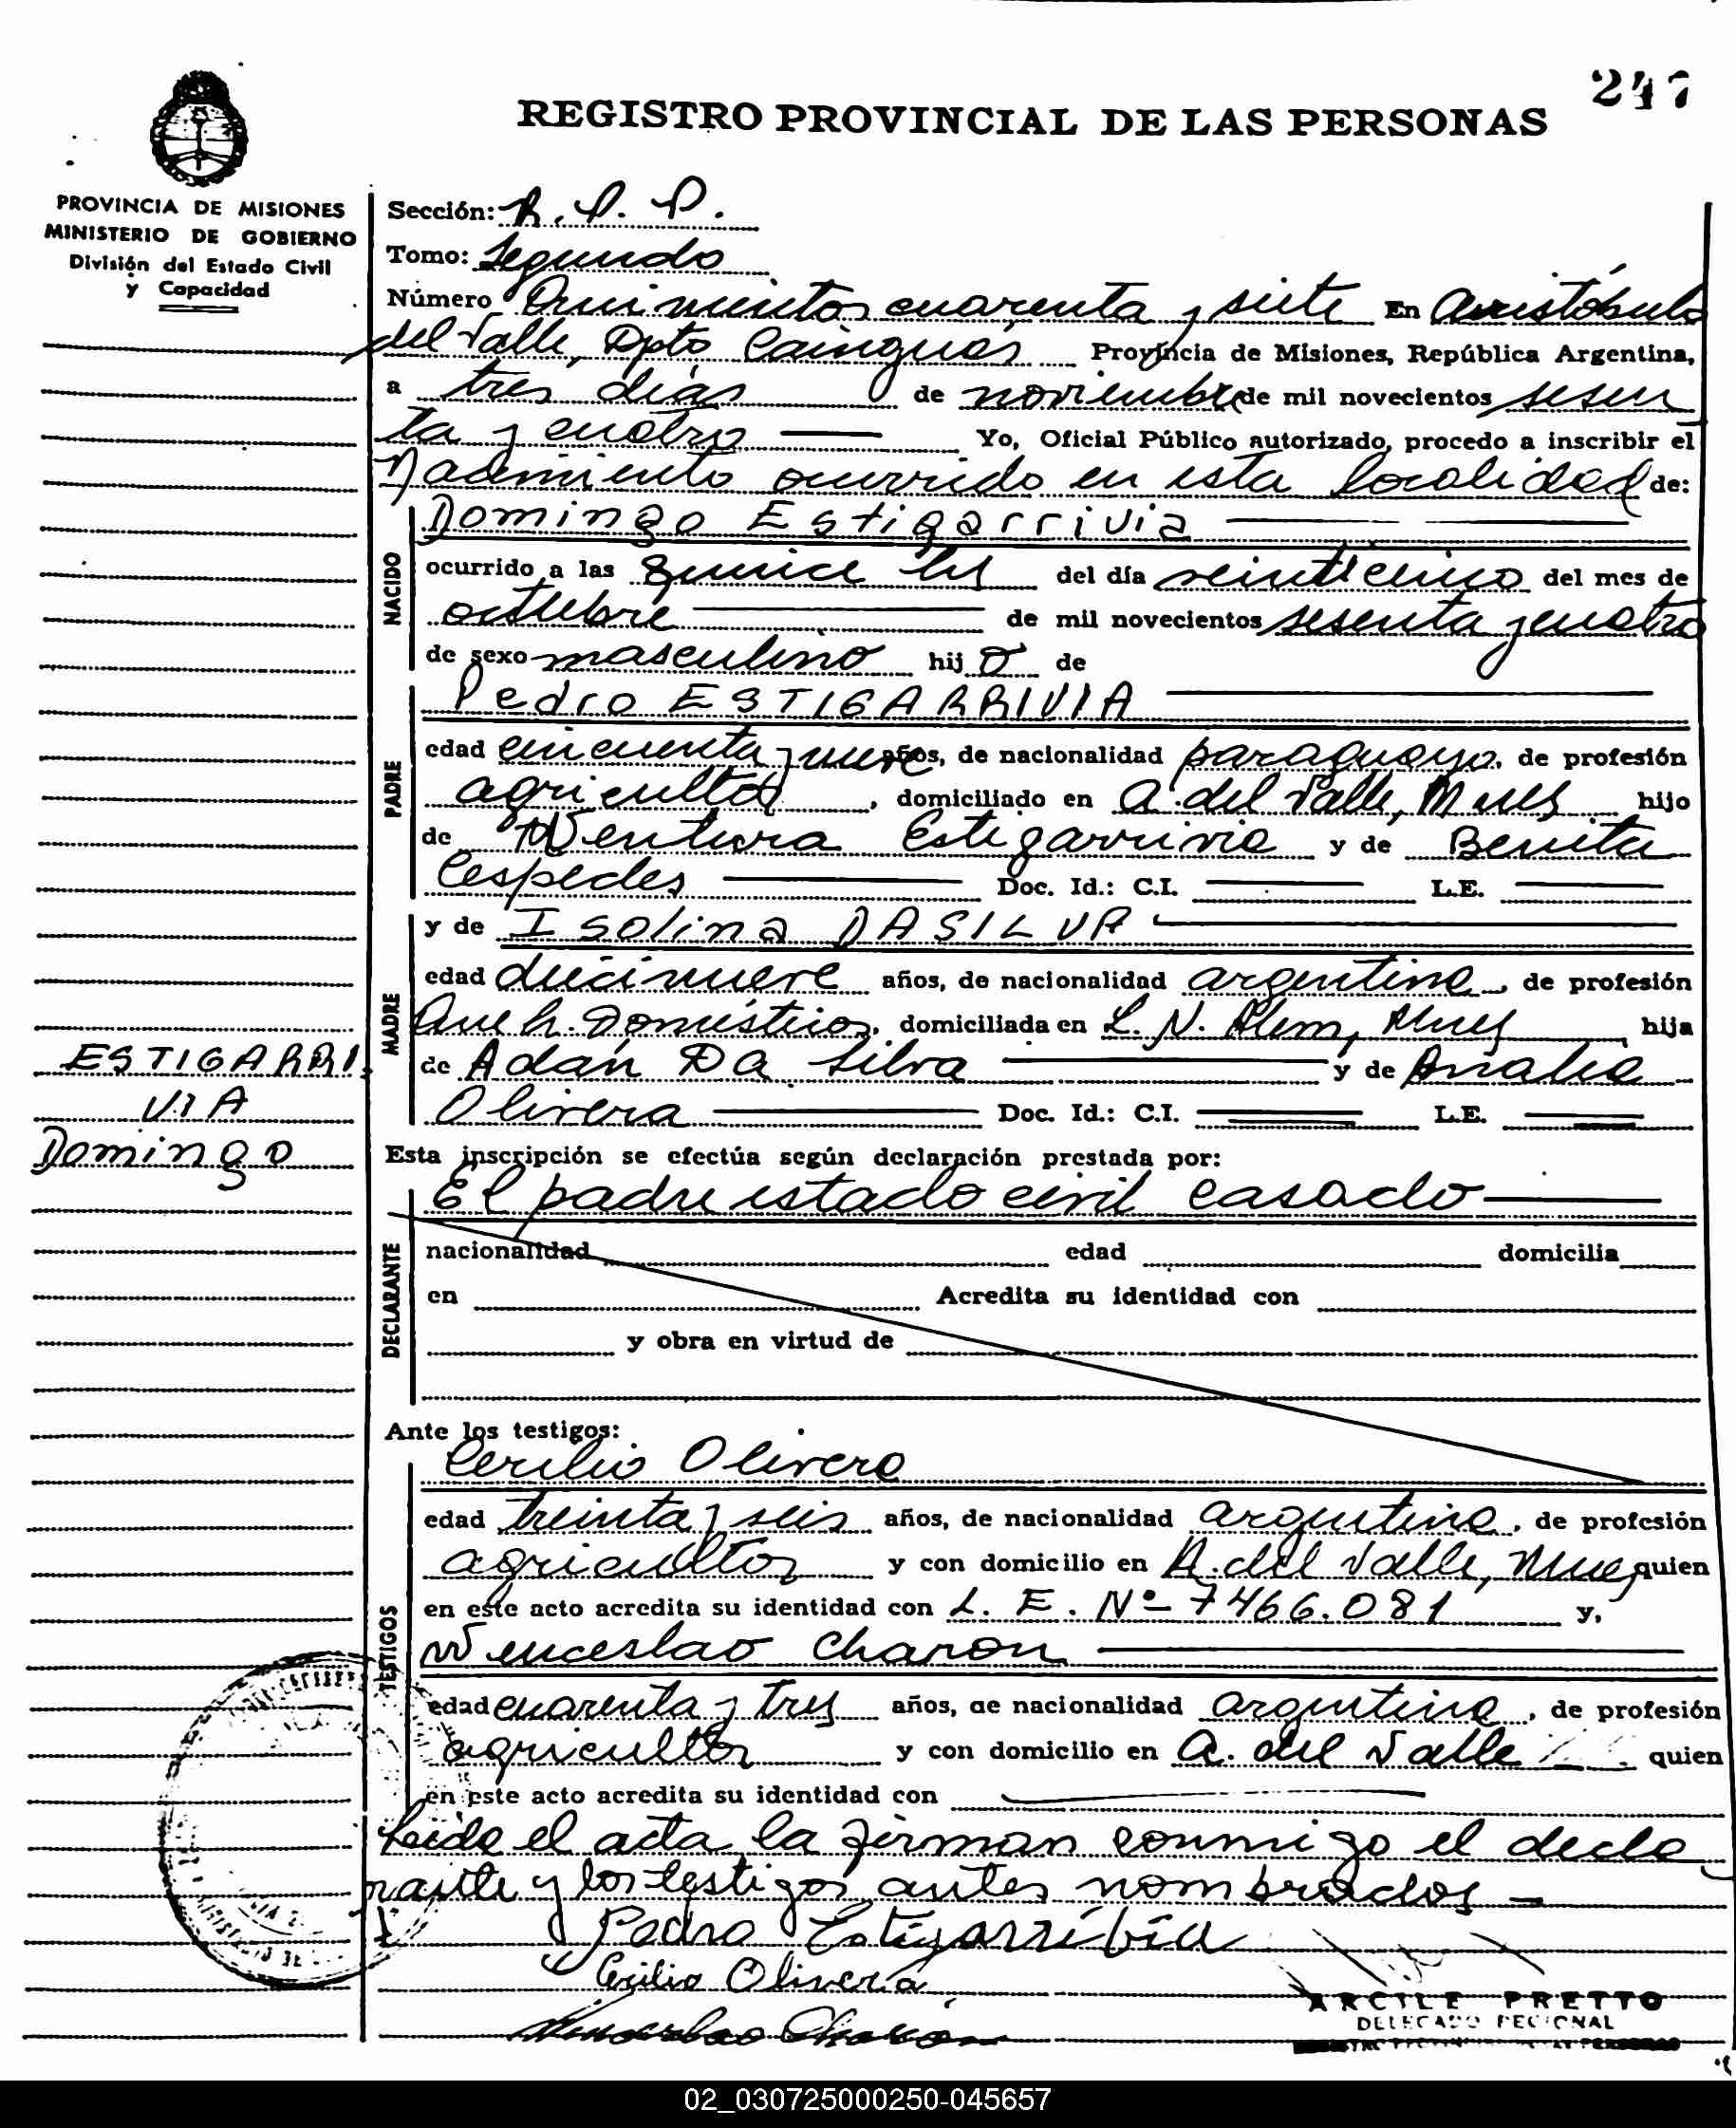 247
REGISTRO PROVINCIAL DE LAS PERSONAS
PROVINCIA DE MISIONES
MINISTERIO DE GOBIERNO
División del Estado Civil
y Capacidad
Sección: R. P. P.
Tomo: Segundo
Número Quinientos cuarenta y siete En Aristóbulo
del Valle, Dpto Cainguás Provincia de Misiones, República Argentina,
a tres días de noviembre de mil novecientos sesen
ta y cuatro Yo, Oficial Público autorizado, procedo a inscribir el
Nacimiento ocurrido en esta localidad de:
NACIDO
Domingo Estigarrivia
ocurrido a las quince hs del día veinticinco del mes de
octubre de mil novecientos sesenta y cuatro
de sexo masculino hij o de
PADRE
Pedro ESTIGARRIVIA
edad cincuenta y nueve años, de nacionalidad paraguayo, de profesión
agricultor, domiciliado en A. del Valle, Mnes hijo
de Ventura Estigarrivia y de Benita
Cespedes Doc. Id.: C.I. L.E.
MADRE
y de Isolina DASILVA
edad diecinueve años, de nacionalidad argentina, de profesión
Queh. Domésticos, domiciliada en L. N. Alem, Mnes hija
de Adán Da Silva y de Analia
Olivera Doc. Id.: C.I. L.E.
ESTIGARRI
VIA
Domingo
Esta inscripción se efectúa según declaración prestada por:
DECLARANTE
El padre estado civil casado
nacionalidad edad domicilia
en Acredita su identidad con
y obra en virtud de
Ante los testigos:
TESTIGOS
Cecilio Olivera
edad treinta y seis años, de nacionalidad argentina, de profesión
agricultor y con domicilio en A. del Valle, Mnes, quien
en este acto acredita su identidad con L. E. Nº 7466.081 y,
Wenceslao Charon
edad cuarenta y tres años, de nacionalidad argentina, de profesión
agricultor y con domicilio en A. del Valle quien
en este acto acredita su identidad con
Leida el acta la firman conmigo el decla
rante y los testigos antes nombrados
Pedro Estigarribia
Cecilio Olivera
ARCILE PRETTO
DELEGADO REGIONAL
02_030725000250-045657